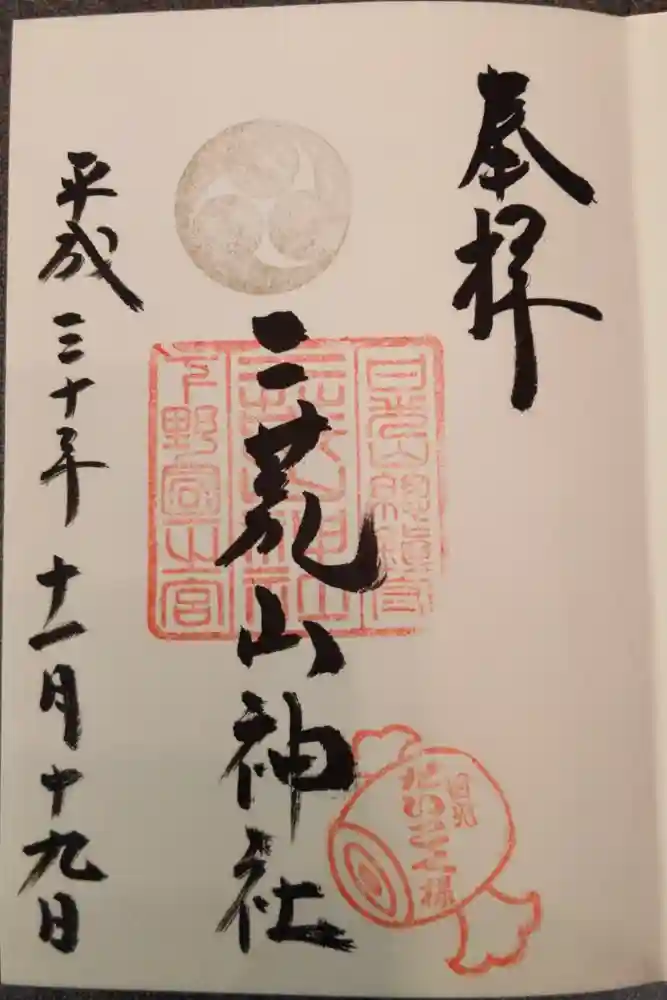 奉拝
二荒山神社
平成三十年十一月十九日
日光山総鎮守
二荒山神社
下野國一宮
日光
だいこく様